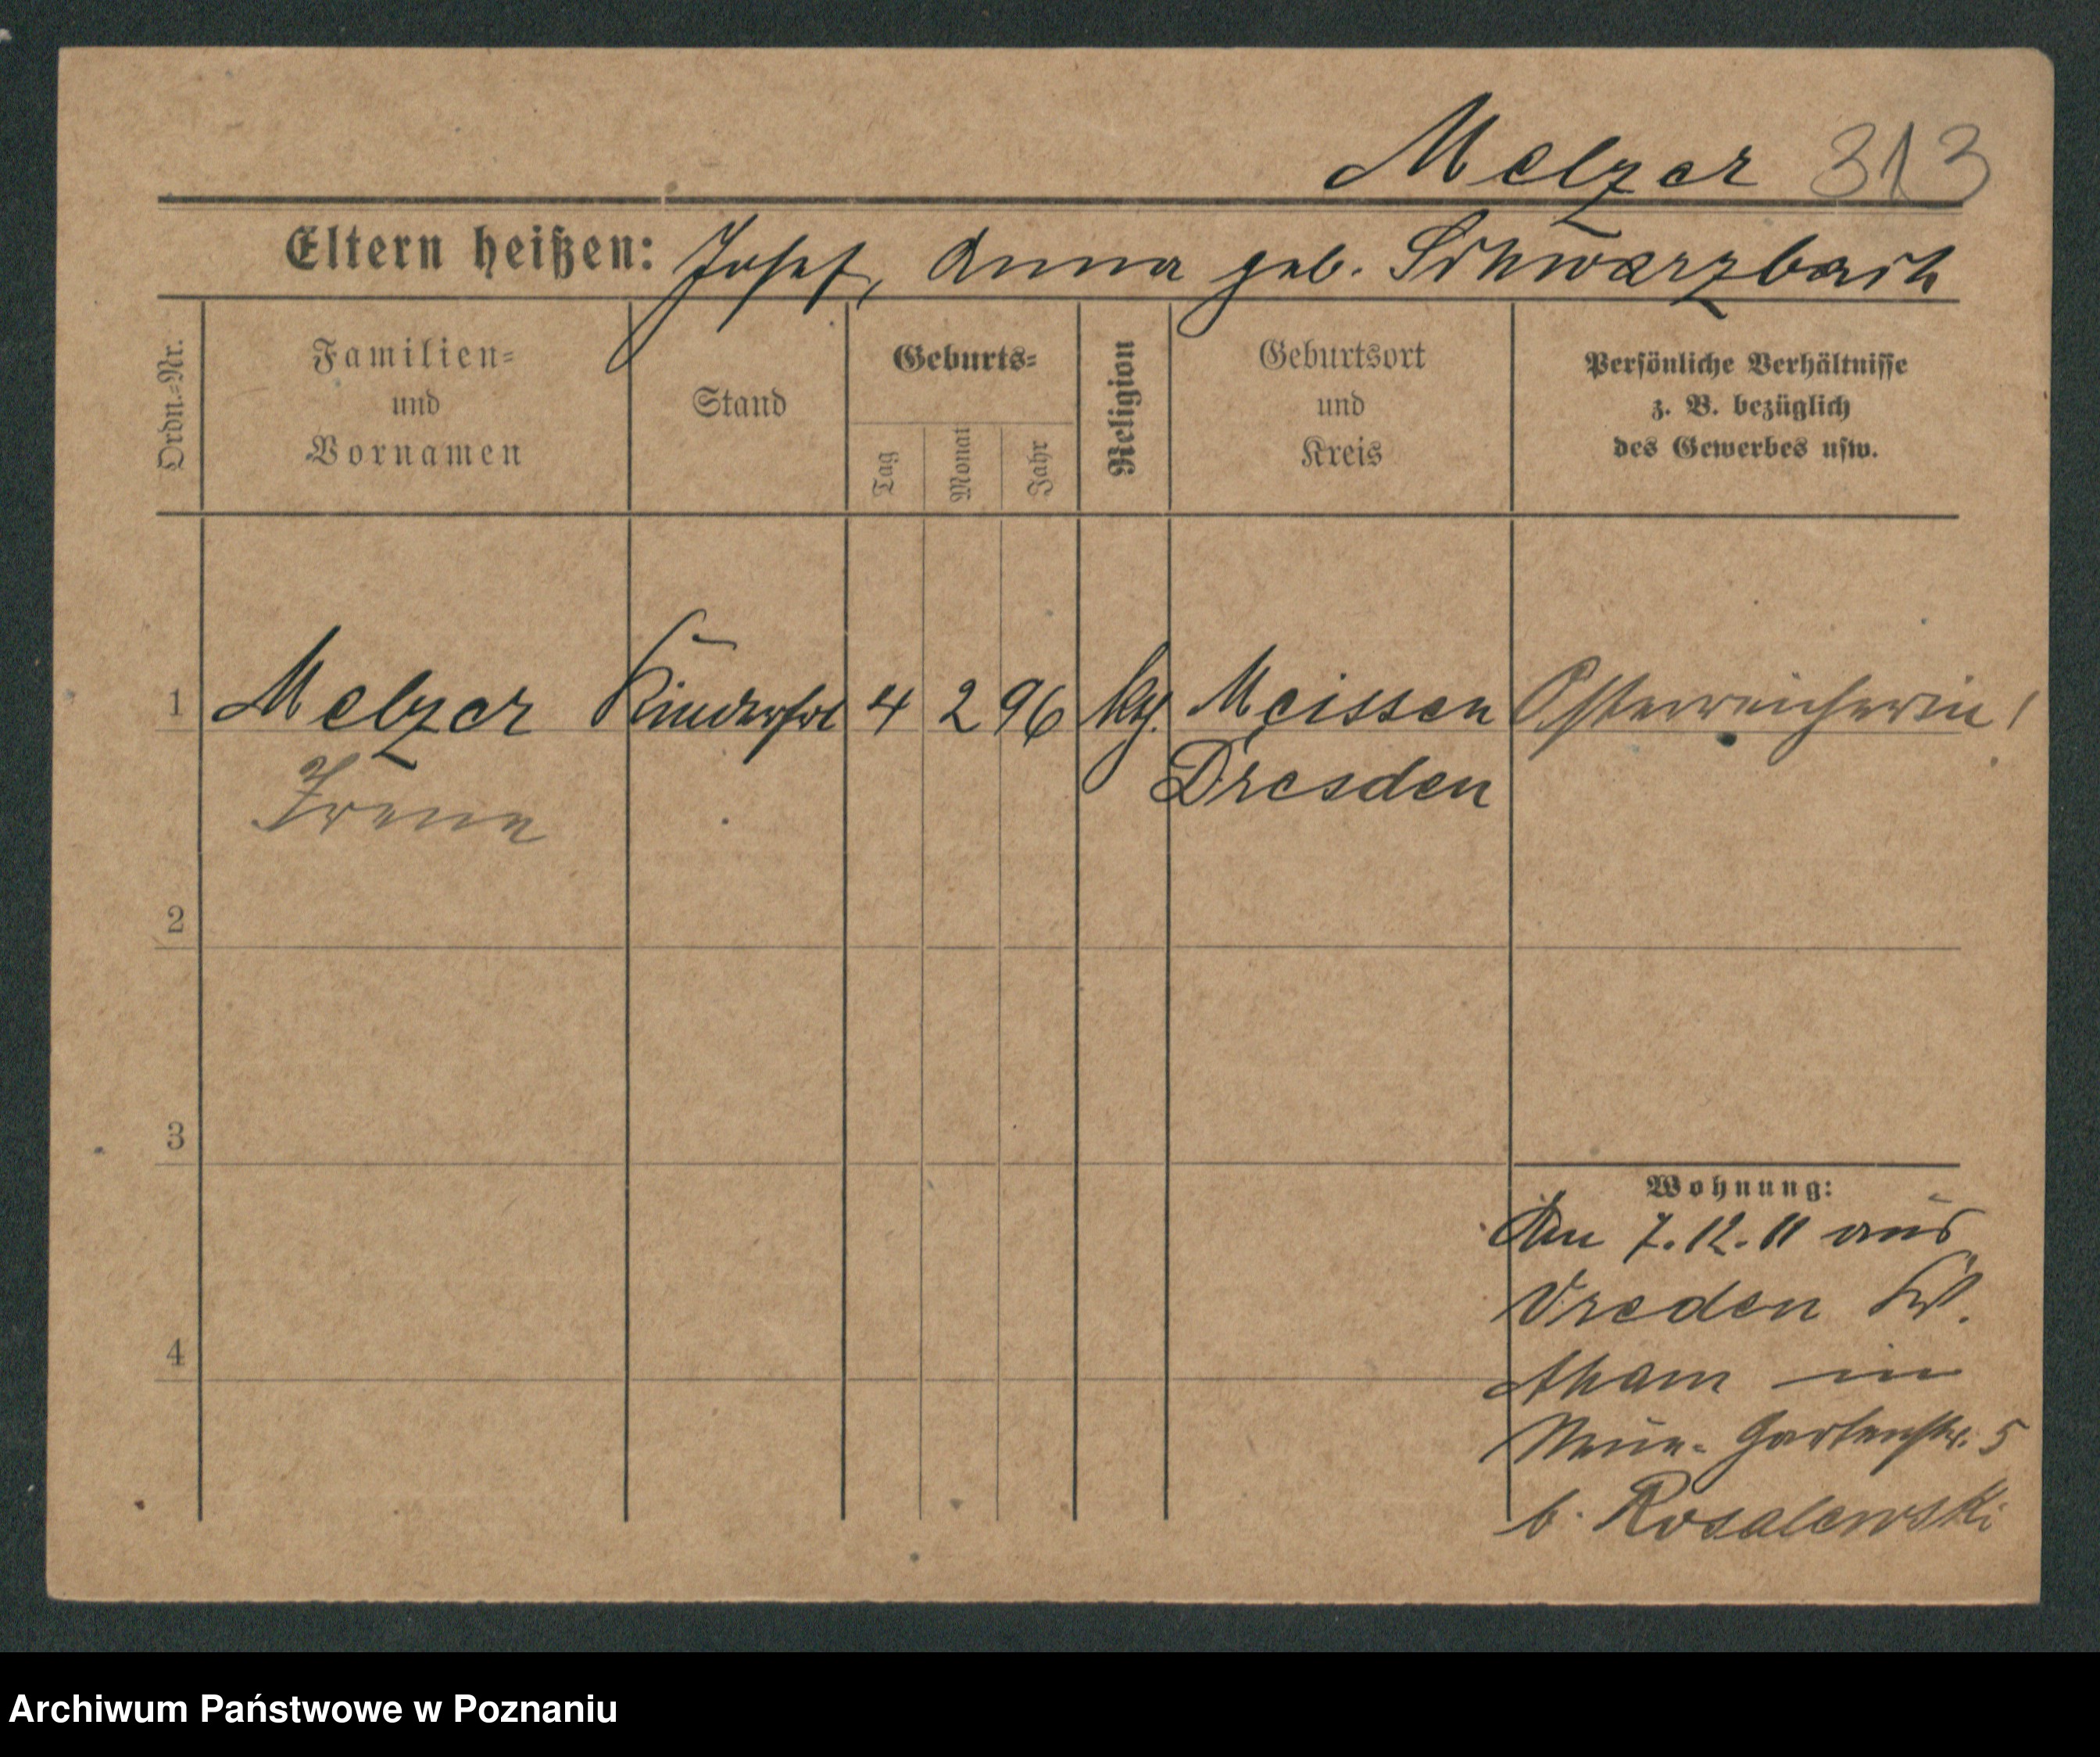 Melzer 313
Eltern heißen: Josef, Anna geb. Schwarzbach
Ordn.-Nr.
Familien-
und
Vornamen
Stand
Geburts-
Tag
Monat
Jahr
Religion
Geburtsort
und
Kreis
Persönliche Verhältnisse
z. B. bezüglich
des Gewerbes usw.
1 Melzer Kinderfrl 4 2 96 Meissen Österreicherin!
Irene Dresden
2
3
4
Wohnung:
Am 7.12.11 aus
Vreden Kr.
Aham in
Neue-Gartenstr. 5
b. Rosalewski
Archiwum Państwowe w Poznaniu